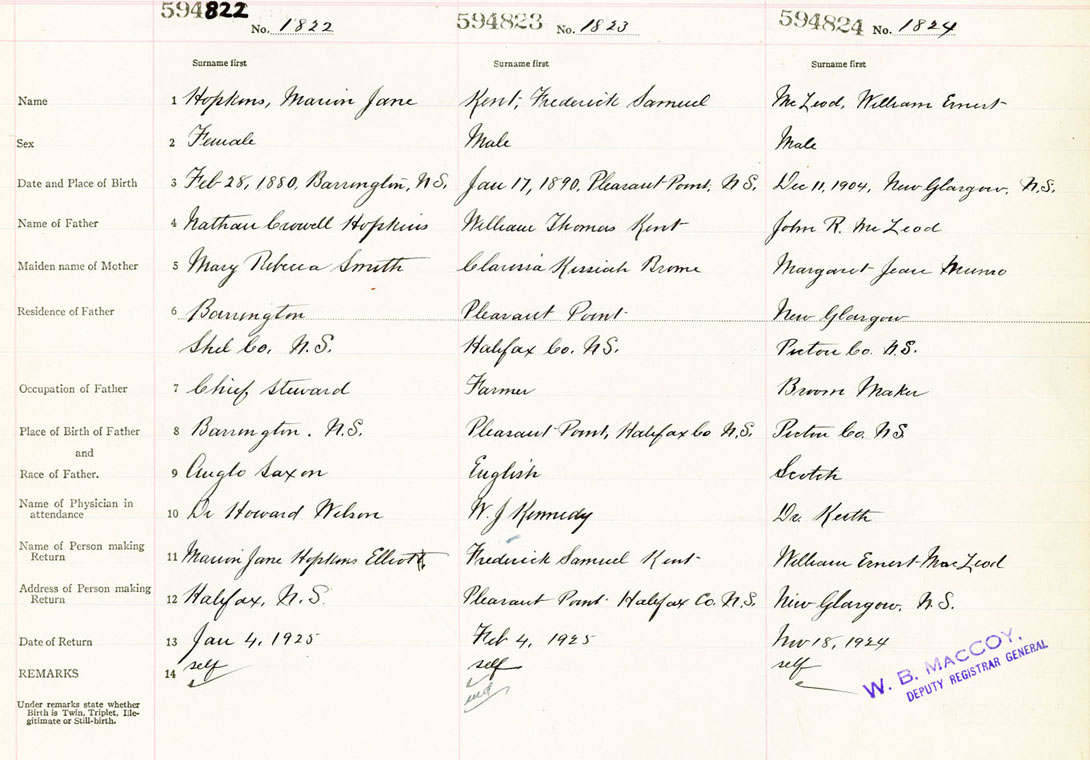 594822 No. 1822 594823 No. 1823 594824 No. 1824
Surname first Surname first Surname first
Name 1 Hopkins, Marion Jane Kent, Frederick Samuel McLeod, William Ernest
Sex 2 Female Male Male
Date and Place of Birth 3 Feb 28, 1880, Barrington, N.S. Jan 17, 1890, Pleasant Point, N.S. Dec 11, 1904, New Glasgow, N.S.
Name of Father 4 Nathan Crowell Hopkins William Thomas Kent John R. McLeod
Maiden name of Mother 5 Mary Rebecca Smith Clarissa Kessiah Brome Margaret Jean Munro
Residence of Father 6 Barrington Pleasant Point New Glasgow
Shel Co. N.S. Halifax Co. N.S. Pictou Co. N.S.
Occupation of Father 7 Chief Steward Farmer Broom Maker
Place of Birth of Father 8 Barrington. N.S. Pleasant Point, Halifax Co N.S. Pictou Co. N.S
and
Race of Father. 9 Anglo Saxon English Scotch
Name of Physician in
attendance 10 Dr Howard Wilson W. J Kennedy Dr. Keith
Name of Person making
Return 11 Marion Jane Hopkins Elliott Frederick Samuel Kent William Ernest MacLeod
Address of Person making
Return 12 Halifax, N.S. Pleasant Point Halifax Co. N.S. New Glasgow, N.S.
Date of Return 13 Jan 4, 1925 Feb 4, 1925 Nov 18, 1924
REMARKS 14 self self self
W. B. MACCOY,
DEPUTY REGISTRAR GENERAL
Under remarks state whether
Birth is Twin, Triplet, Ille-
gitimate or Still-birth.